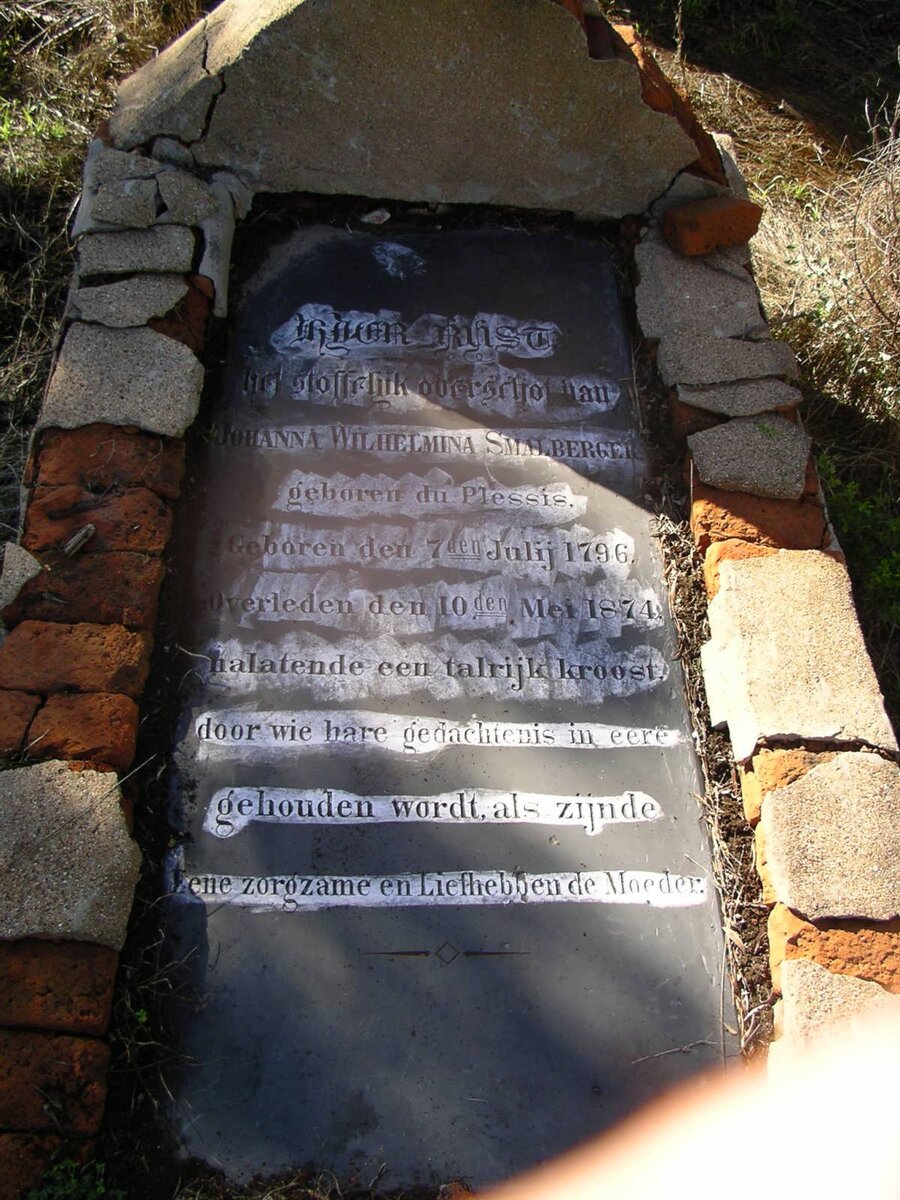 Hier Rust
het stoffelijk overschot van
Johanna Wilhelmina Smalberger
geboren du Plessis.
Geboren den 7den Julij 1796.
Overleden den 10den Mei 1874,
nalatende een talrijk kroost,
door wie hare gedachtenis in eere
gehouden wordt, als zijnde
Eene zorgzame en Liefhebbende Moeder.